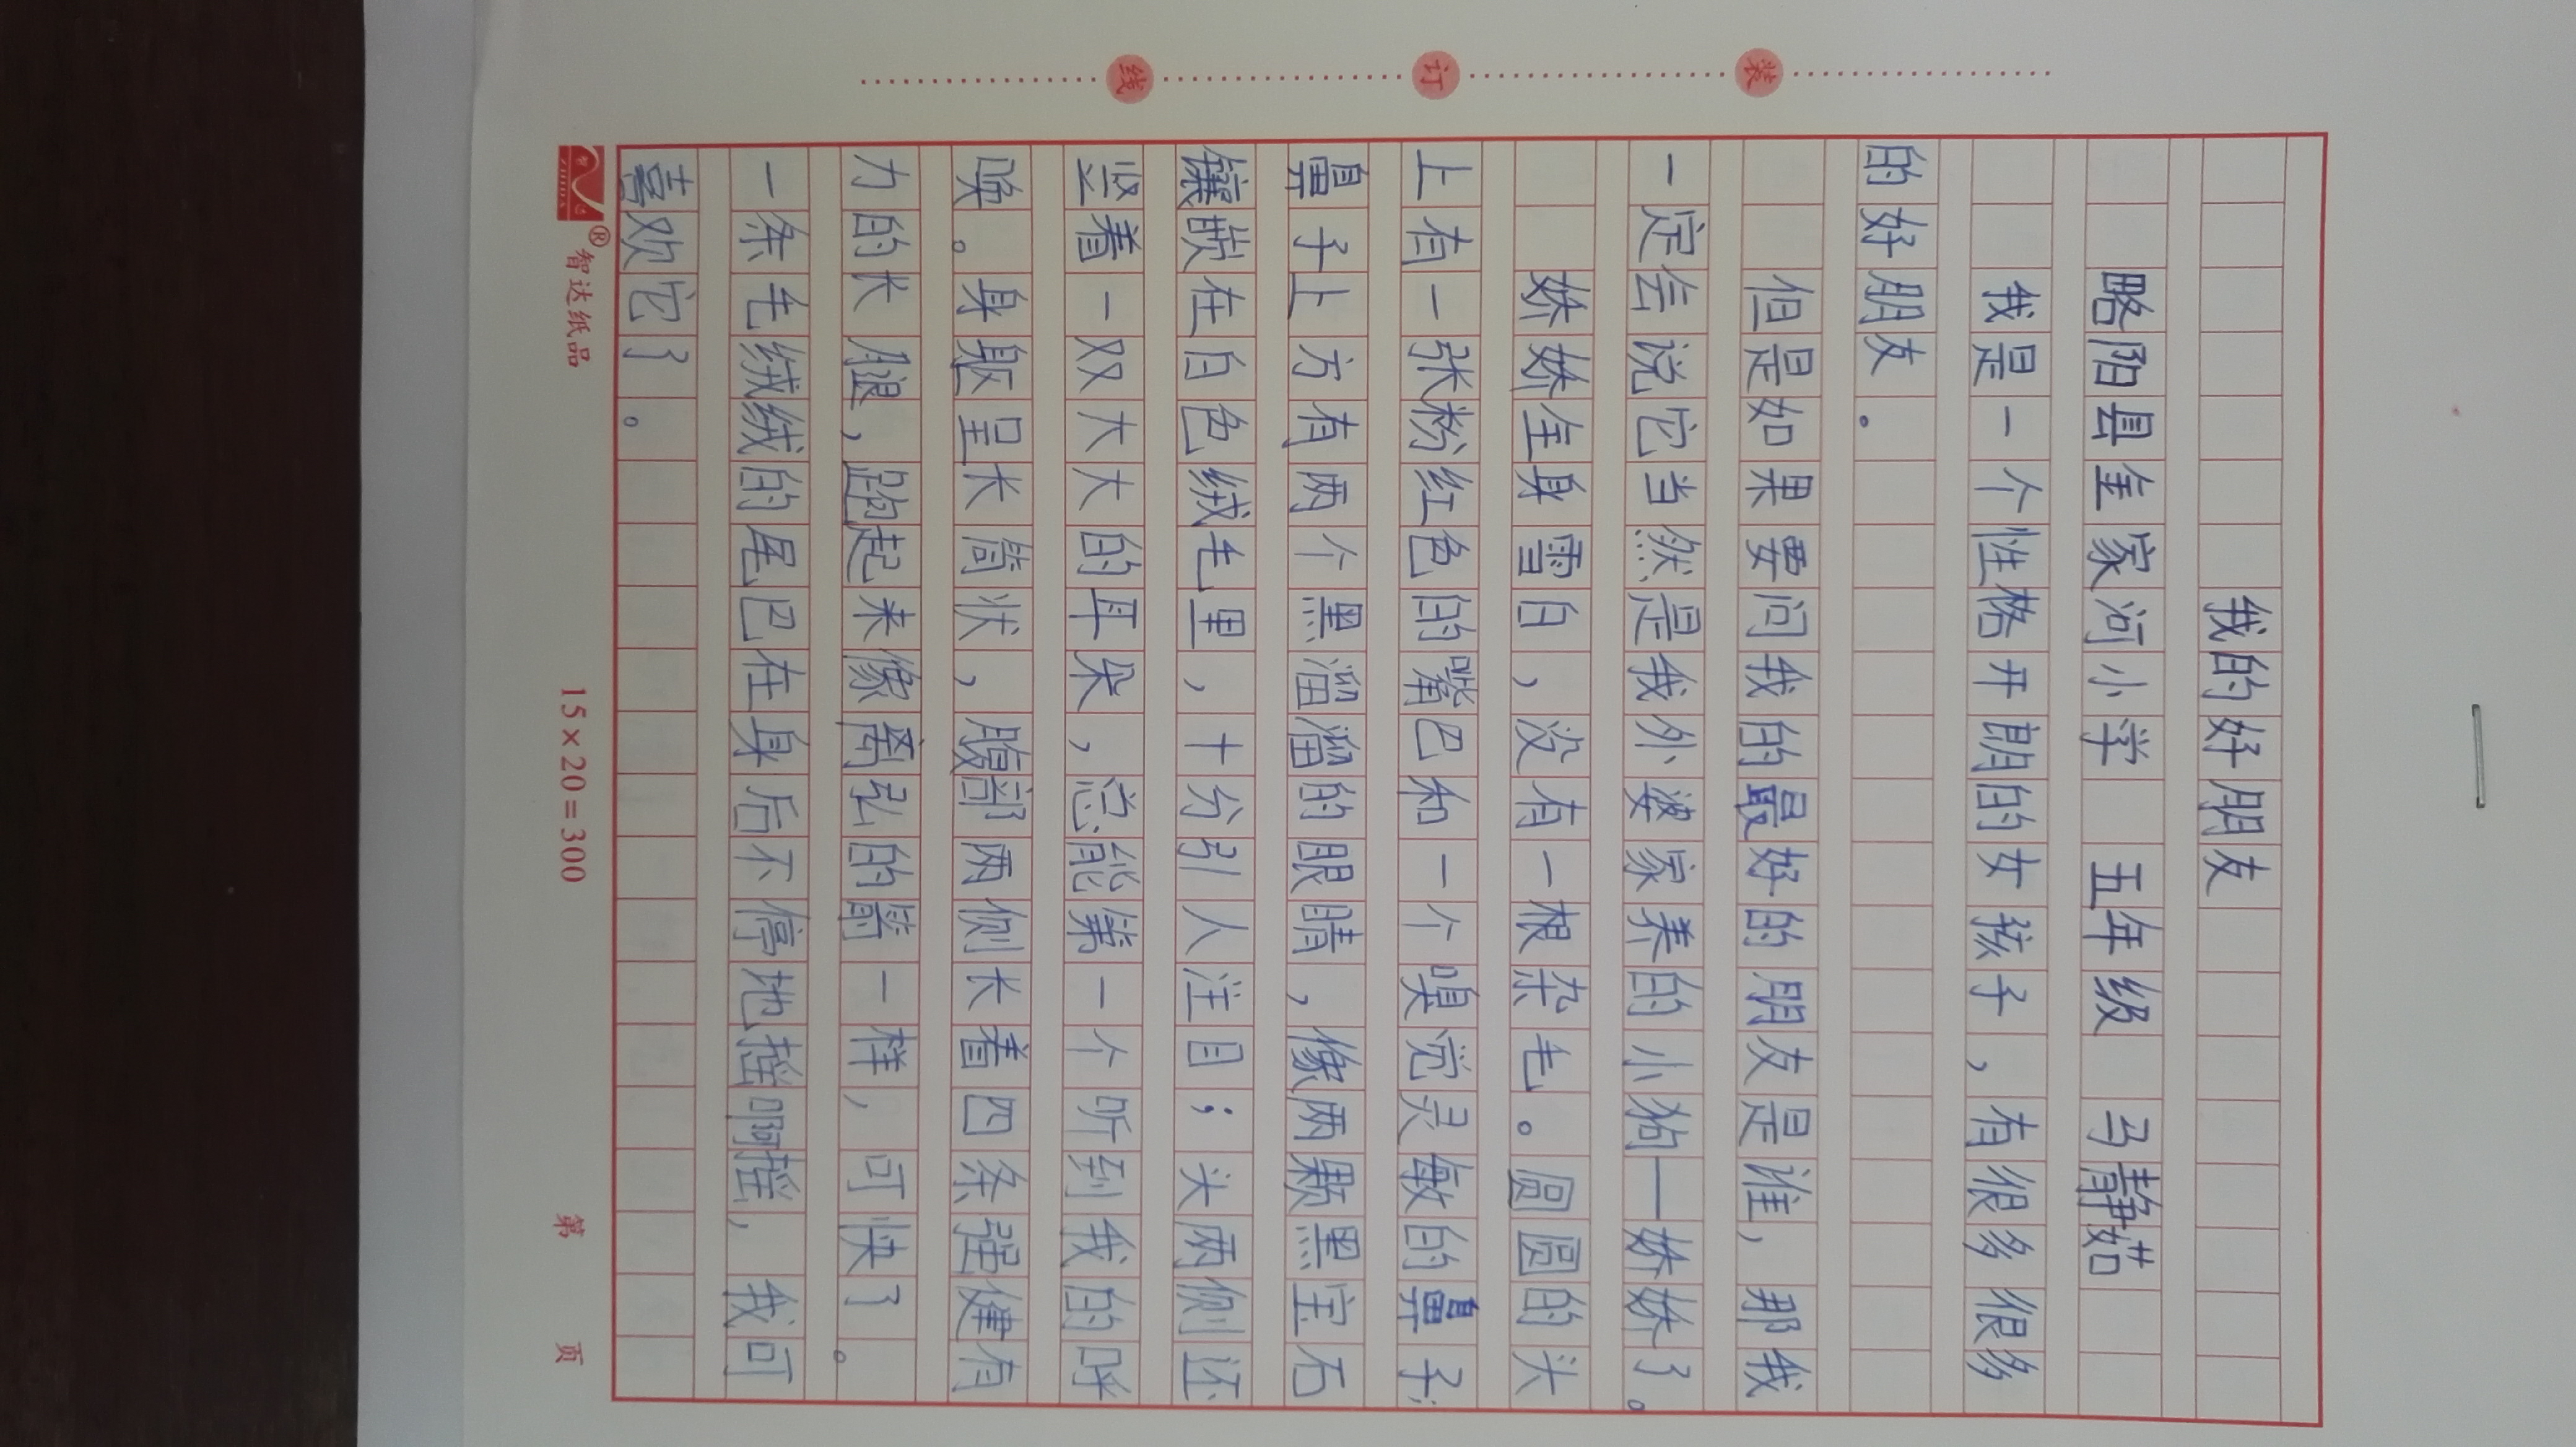 装 订 线
我的好朋友
略阳县金家河小学 五年级 马静茹
我是一个性格开朗的女孩子，有很多很多
的好朋友。
但是如果要问我的最好的朋友是谁，那我
一定会说它当然是我外婆家养的小狗—娇娇了。
娇娇全身雪白，没有一根杂毛。圆圆的头
上有一张粉红色的嘴巴和一个嗅觉灵敏的鼻子；
鼻子上方有两个黑溜溜的眼睛，像两颗黑宝石
镶嵌在白色绒毛里，十分引人注目；头两侧还
竖着一双大大的耳朵，总能第一个听到我的呼
唤。身躯呈长筒状，腹部两侧长着四条强健有
力的长腿，跑起来像离弘的箭一样，可快了。
一条毛绒绒的尾巴在身后不停地摇啊摇，我可
喜欢它了。
智达纸品
ZHIDA
®
15×20=300
第 页